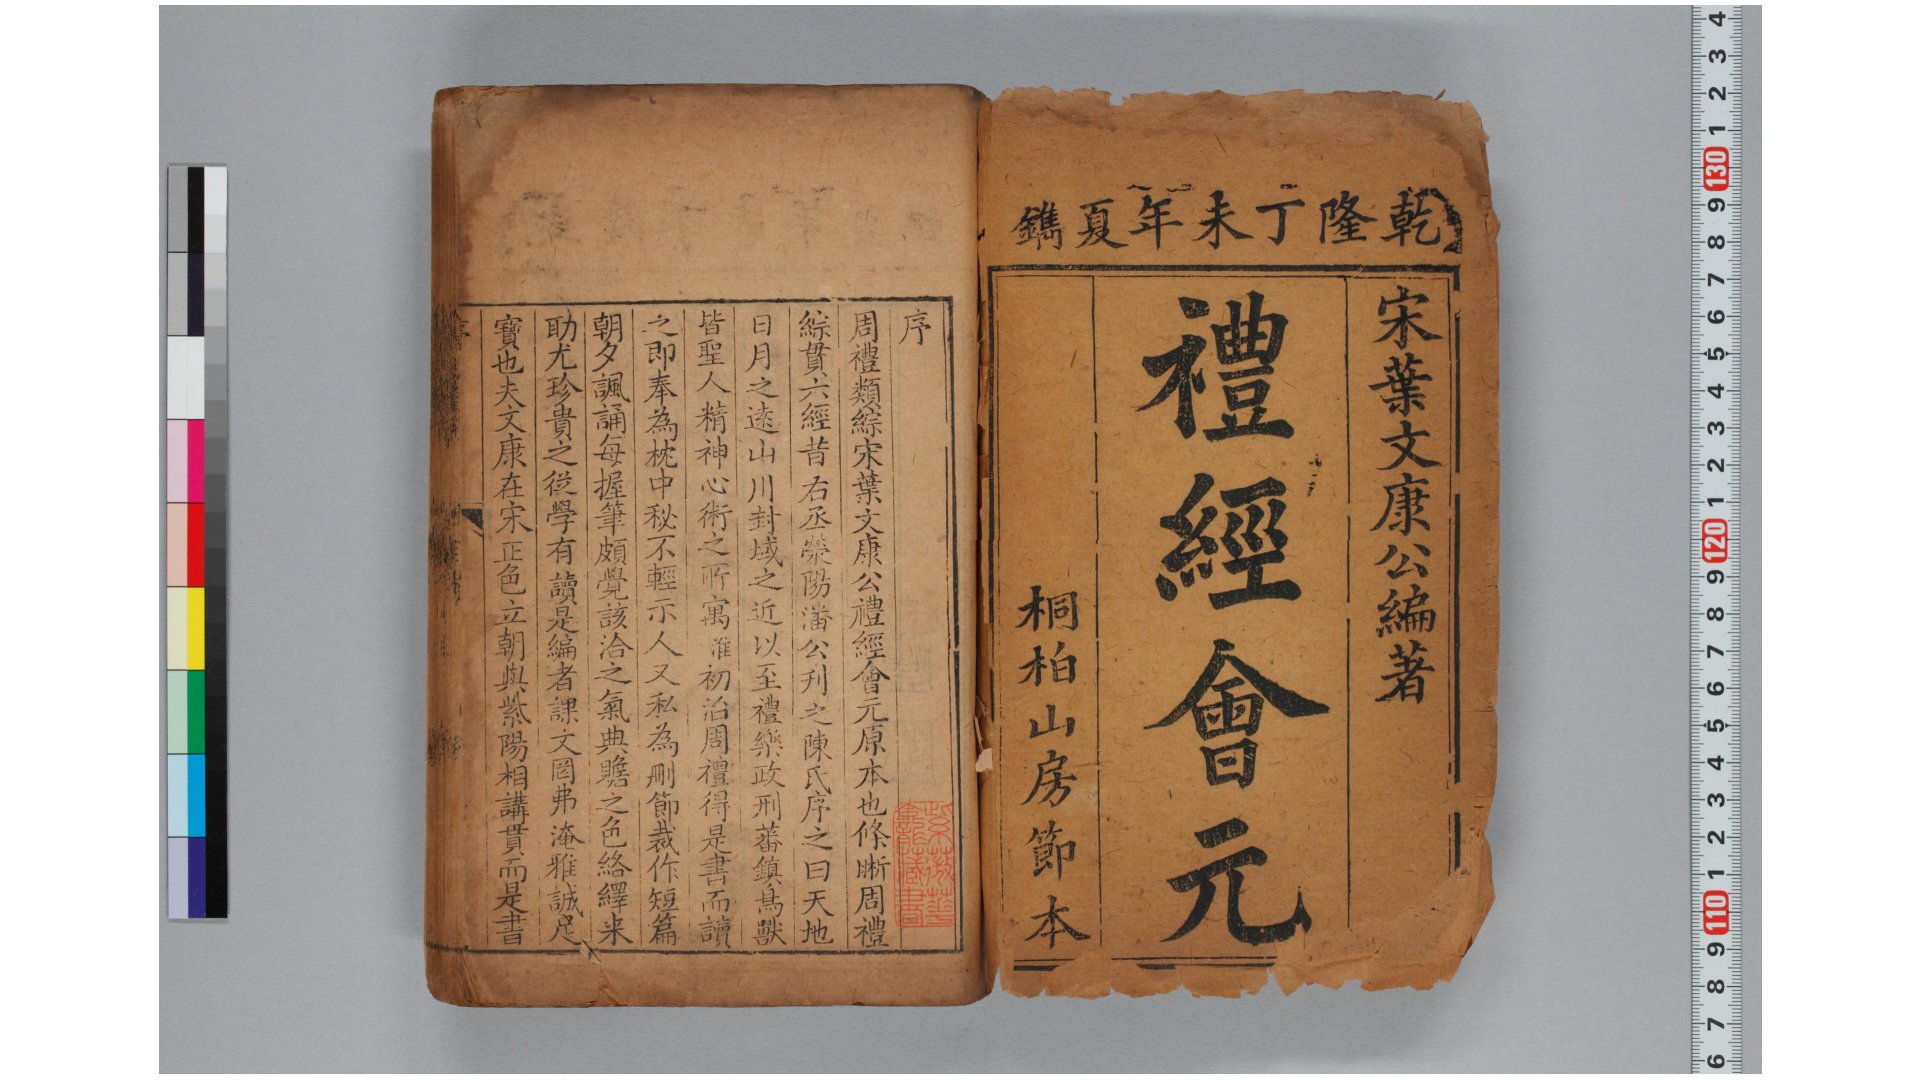 乾隆丁未年夏鐫
宋葉文康公編著
禮經會元
桐柏山房節本
序
周禮類綜宋葉文康公禮經會元原本也條晰周禮
綜貫六經昔右丞滎陽潘公刋之陳氏序之曰天地
日月之遠山川封域之近以至禮樂政刑蕃鎮鳥獸
皆聖人精神心術之所寓淮初治周禮得是書而讀
之即奉為枕中秘不輕示人又私為刪節裁作短篇
朝夕諷誦每握筆頗覺該洽之氣典贍之色絡繹来
助尤珍貴之從學有讀是編者課文罔弗淹雅誠足
寶也夫文康在宋正色立朝與紫陽相講貫而是書
藏書
130
120
110